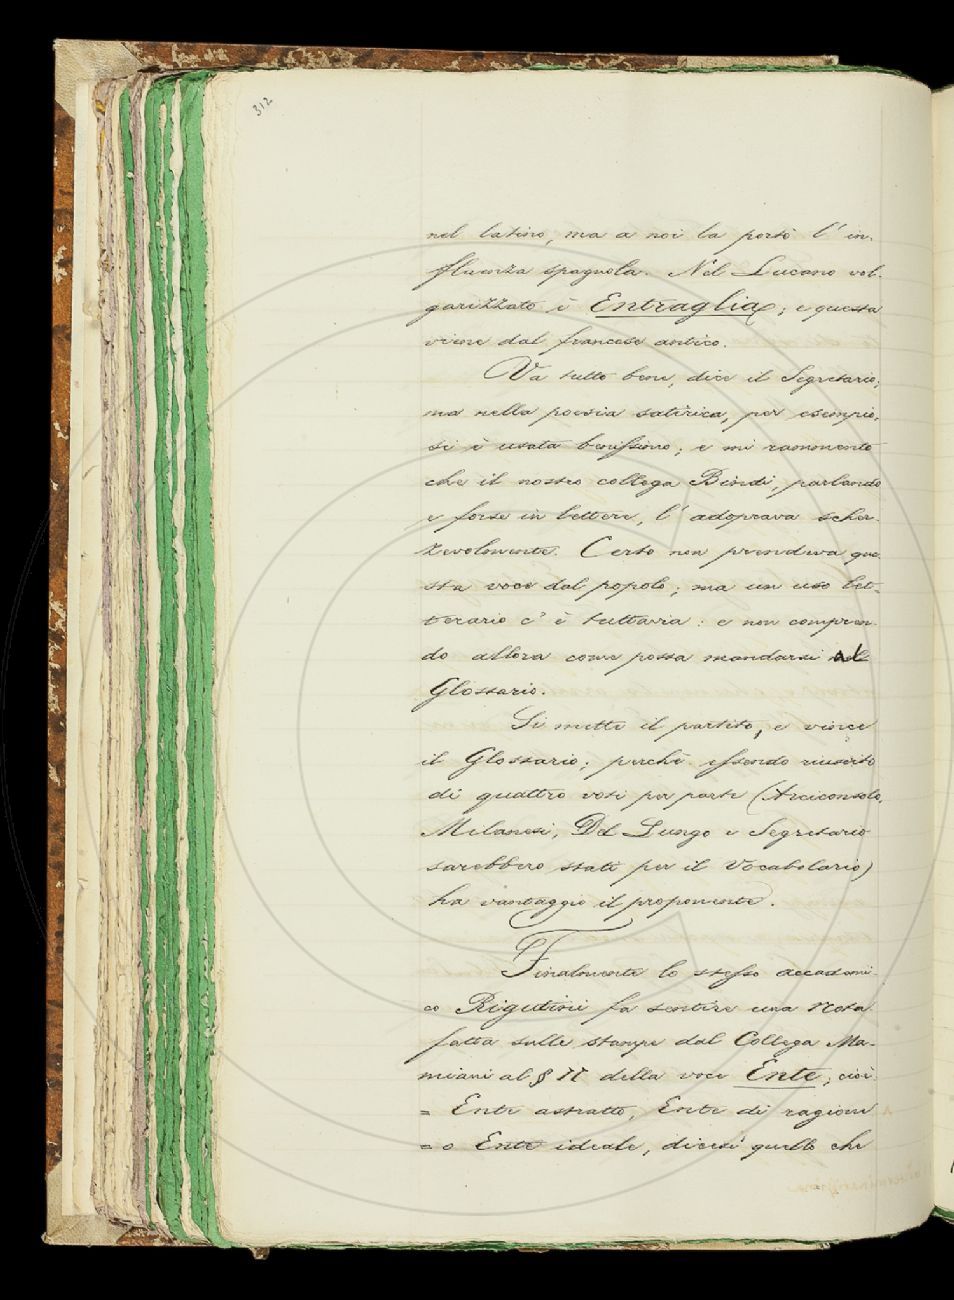 312
nel latino, ma a noi la portò l' in-
fluenza spagnola. Nel Lucano vol-
garizzato è Entraglia; e questa
viene dal francese antico.
Va tutto bene, dice il Segretario;
ma nella poesia satirica, per esempio,
si è usata benissimo; e mi rammento
che il nostro collega Bindi, parlando
e forse in lettere, l' adoprava scher-
zevolmente. Certo non prendeva que-
sta voce dal popolo; ma un uso let-
terario c' è tuttavia: e non compren-
do allora come possa mandarsi al
Glossario.
Si mette il partito, e vince
il Glossario; perchè essendo riuscito
di quattro voti per parte (Arciconsolo,
Milanesi, Del Lungo e Segretario
sarebbero stati per il Vocabolario)
ha vantaggio il proponente.
Finalmente lo stesso accademi-
co Rigutini fa sentire una nota
fatta sulle stampe dal Collega Ma-
miani al § II della voce Ente, cioè:
= Ente astratto, Ente di ragione
= o Ente ideale, dicesi quello che